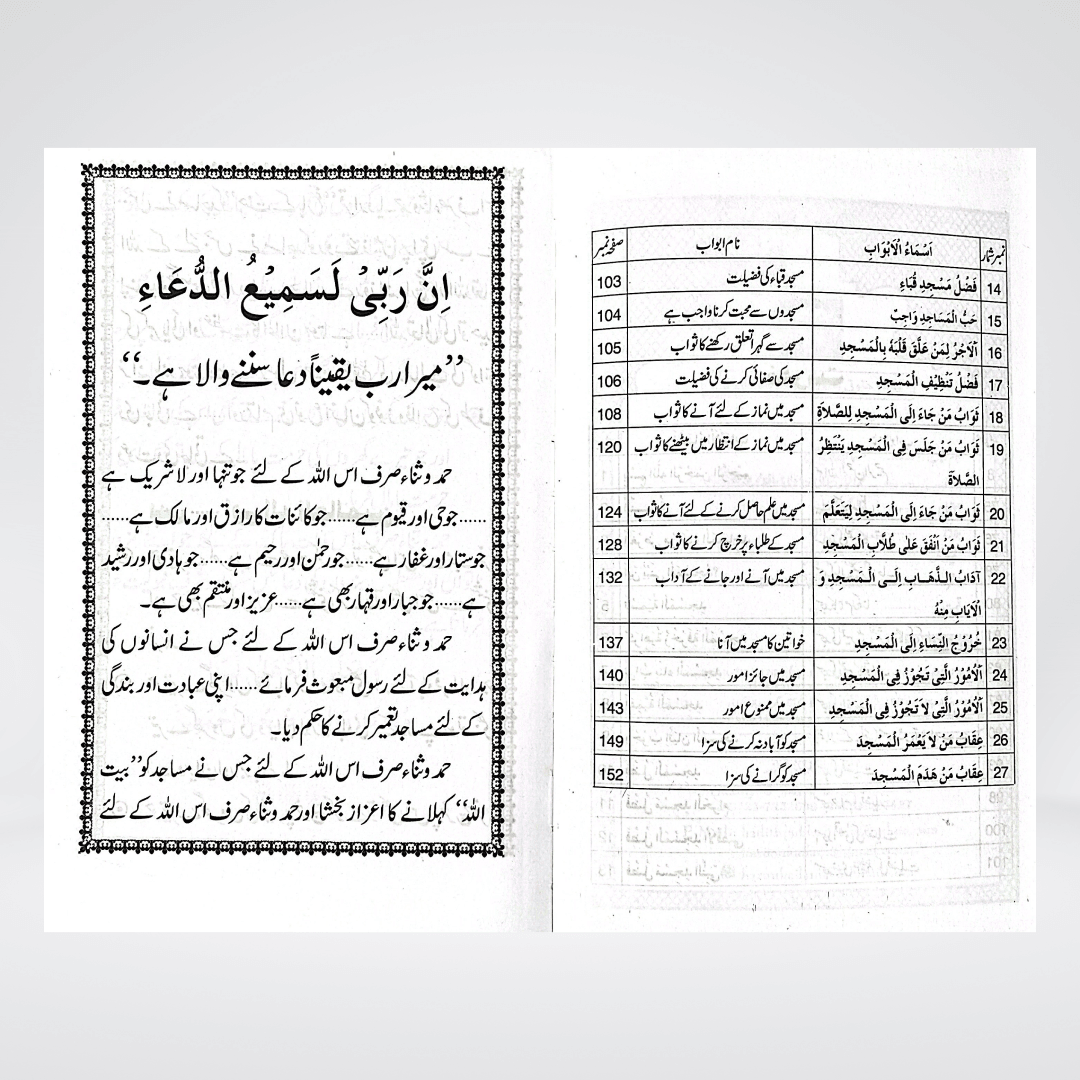 نمبر شمار اَسْمَاءُ الْاَبْوَابِ نام ابواب صفحہ نمبر
14 فَضْلُ مَسْجِدِ قُبَاءٍ مسجد قباء کی فضیلت 103
15 حُبُّ الْمَسَاجِدِ وَاجِبٌ مسجدوں سے محبت کرنا واجب ہے 104
16 اَلْاَجْرُ لِمَنْ عَلَّقَ قَلْبَهُ بِالْمَسْجِدِ مسجد سے گہرا تعلق رکھنے کا ثواب 105
17 فَضْلُ تَنْظِيْفِ الْمَسْجِدِ مسجد کی صفائی کرنے کی فضیلت 106
18 ثَوَابُ مَنْ جَاءَ اِلَى الْمَسْجِدِ لِلصَّلاَةِ مسجد میں نماز کے لئے آنے کا ثواب 108
19 ثَوَابُ مَنْ جَلَسَ فِى الْمَسْجِدِ يَنْتَظِرُ مسجد میں نماز کے انتظار میں بیٹھنے کا ثواب 120
الصَّلاَةَ
20 ثَوَابُ مَنْ جَاءَ اِلَى الْمَسْجِدِ لِيَتَعَلَّمَ مسجد میں علم حاصل کرنے کے لئے آنے کا ثواب 124
21 ثَوَابُ مَنْ اَنْفَقَ عَلٰى طُلَّابِ الْمَسْجِدِ مسجد کے طلباء پر خرچ کرنے کا ثواب 128
22 آدَابُ الـذَّهَـابِ اِلَـى الْـمَسْجِدِ وَ مسجد میں آنے اور جانے کے آداب 132
الْاَيَابِ مِنْهُ
23 خُرُوْجُ النِّسَاءِ اِلَى الْمَسْجِدِ خواتین کا مسجد میں آنا 137
24 اَلْاُمُوْرُ الَّتِىْ تَجُوْزُ فِى الْمَسْجِدِ مسجد میں جائز امور 140
25 اَلْاُمُوْرُ الَّتِىْ لاَ تَجُوْزُ فِى الْمَسْجِدِ مسجد میں ممنوع امور 143
26 عِقَابُ مَنْ لاَ يَعْمُرُ الْمَسْجِدَ مسجد کو آباد نہ کرنے کی سزا 149
27 عِقَابُ مَنْ هَدَمَ الْمَسْجِدَ مسجد کو گرانے کی سزا 152
اِنَّ رَبِّىْ لَسَمِيْعُ الدُّعَاءِ
”میرا رب یقیناً دعا سننے والا ہے۔“
حمد و ثناء صرف اس اللہ کے لئے جو تنہا اور لا شریک ہے
......جو حی اور قیوم ہے......جو کائنات کا رازق اور مالک ہے......
جو ستار اور غفار ہے......جو رحمٰن اور رحیم ہے......جو ہادی اور رشید
ہے......جو جبار اور قہار بھی ہے......عزیز اور منتقم بھی ہے۔
حمد و ثناء صرف اس اللہ کے لئے جس نے انسانوں کی
ہدایت کے لئے رسول مبعوث فرمائے......اپنی عبادت اور بندگی
کے لئے مساجد تعمیر کرنے کا حکم دیا۔
حمد و ثناء صرف اس اللہ کے لئے جس نے مساجد کو ”بیت
اللہ“ کہلانے کا اعزاز بخشا اور حمد و ثناء صرف اس اللہ کے لئے